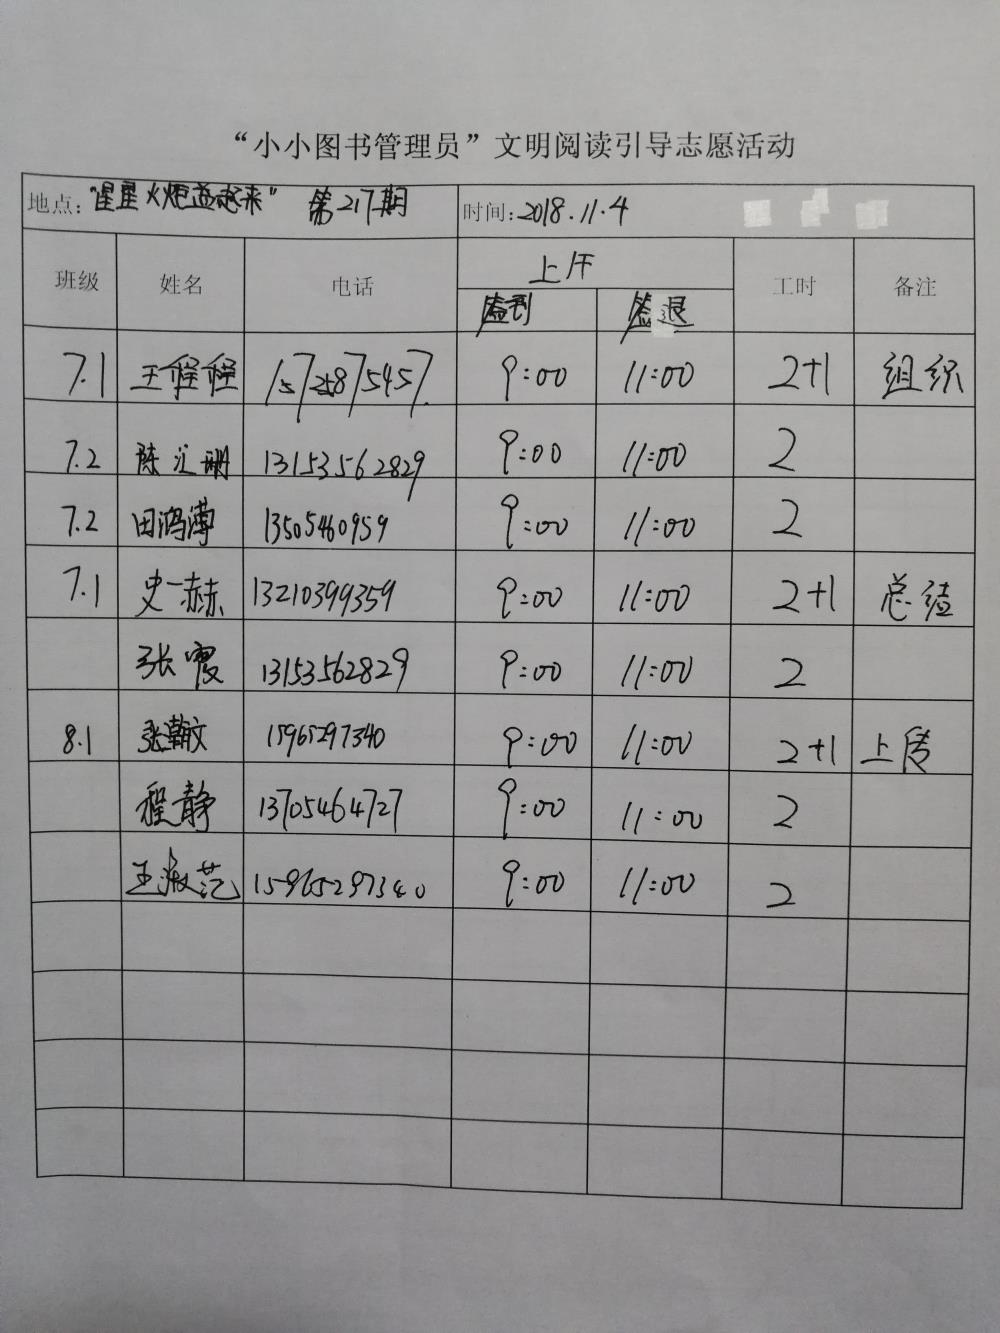 “小小图书管理员”文明阅读引导志愿活动
地点：“星星火炬 第217期 时间：2018.11.4
班级 姓名 电话 上午 工时 备注
签到 签退
7.1 王 15725875457 9:00 11:00 2+1 组织
7.2 陈汇珊 13153562829 9:00 11:00 2
7.2 田鸿 13505460959 9:00 11:00 2
7.1 史一赫 13210399359 9:00 11:00 2+1 总结
张霞 13153562829 9:00 11:00 2
8.1 张瀚文 15965297340 9:00 11:00 2+1 上传
程静 13705464727 9:00 11:00 2
王淑范 15965297340 9:00 11:00 2